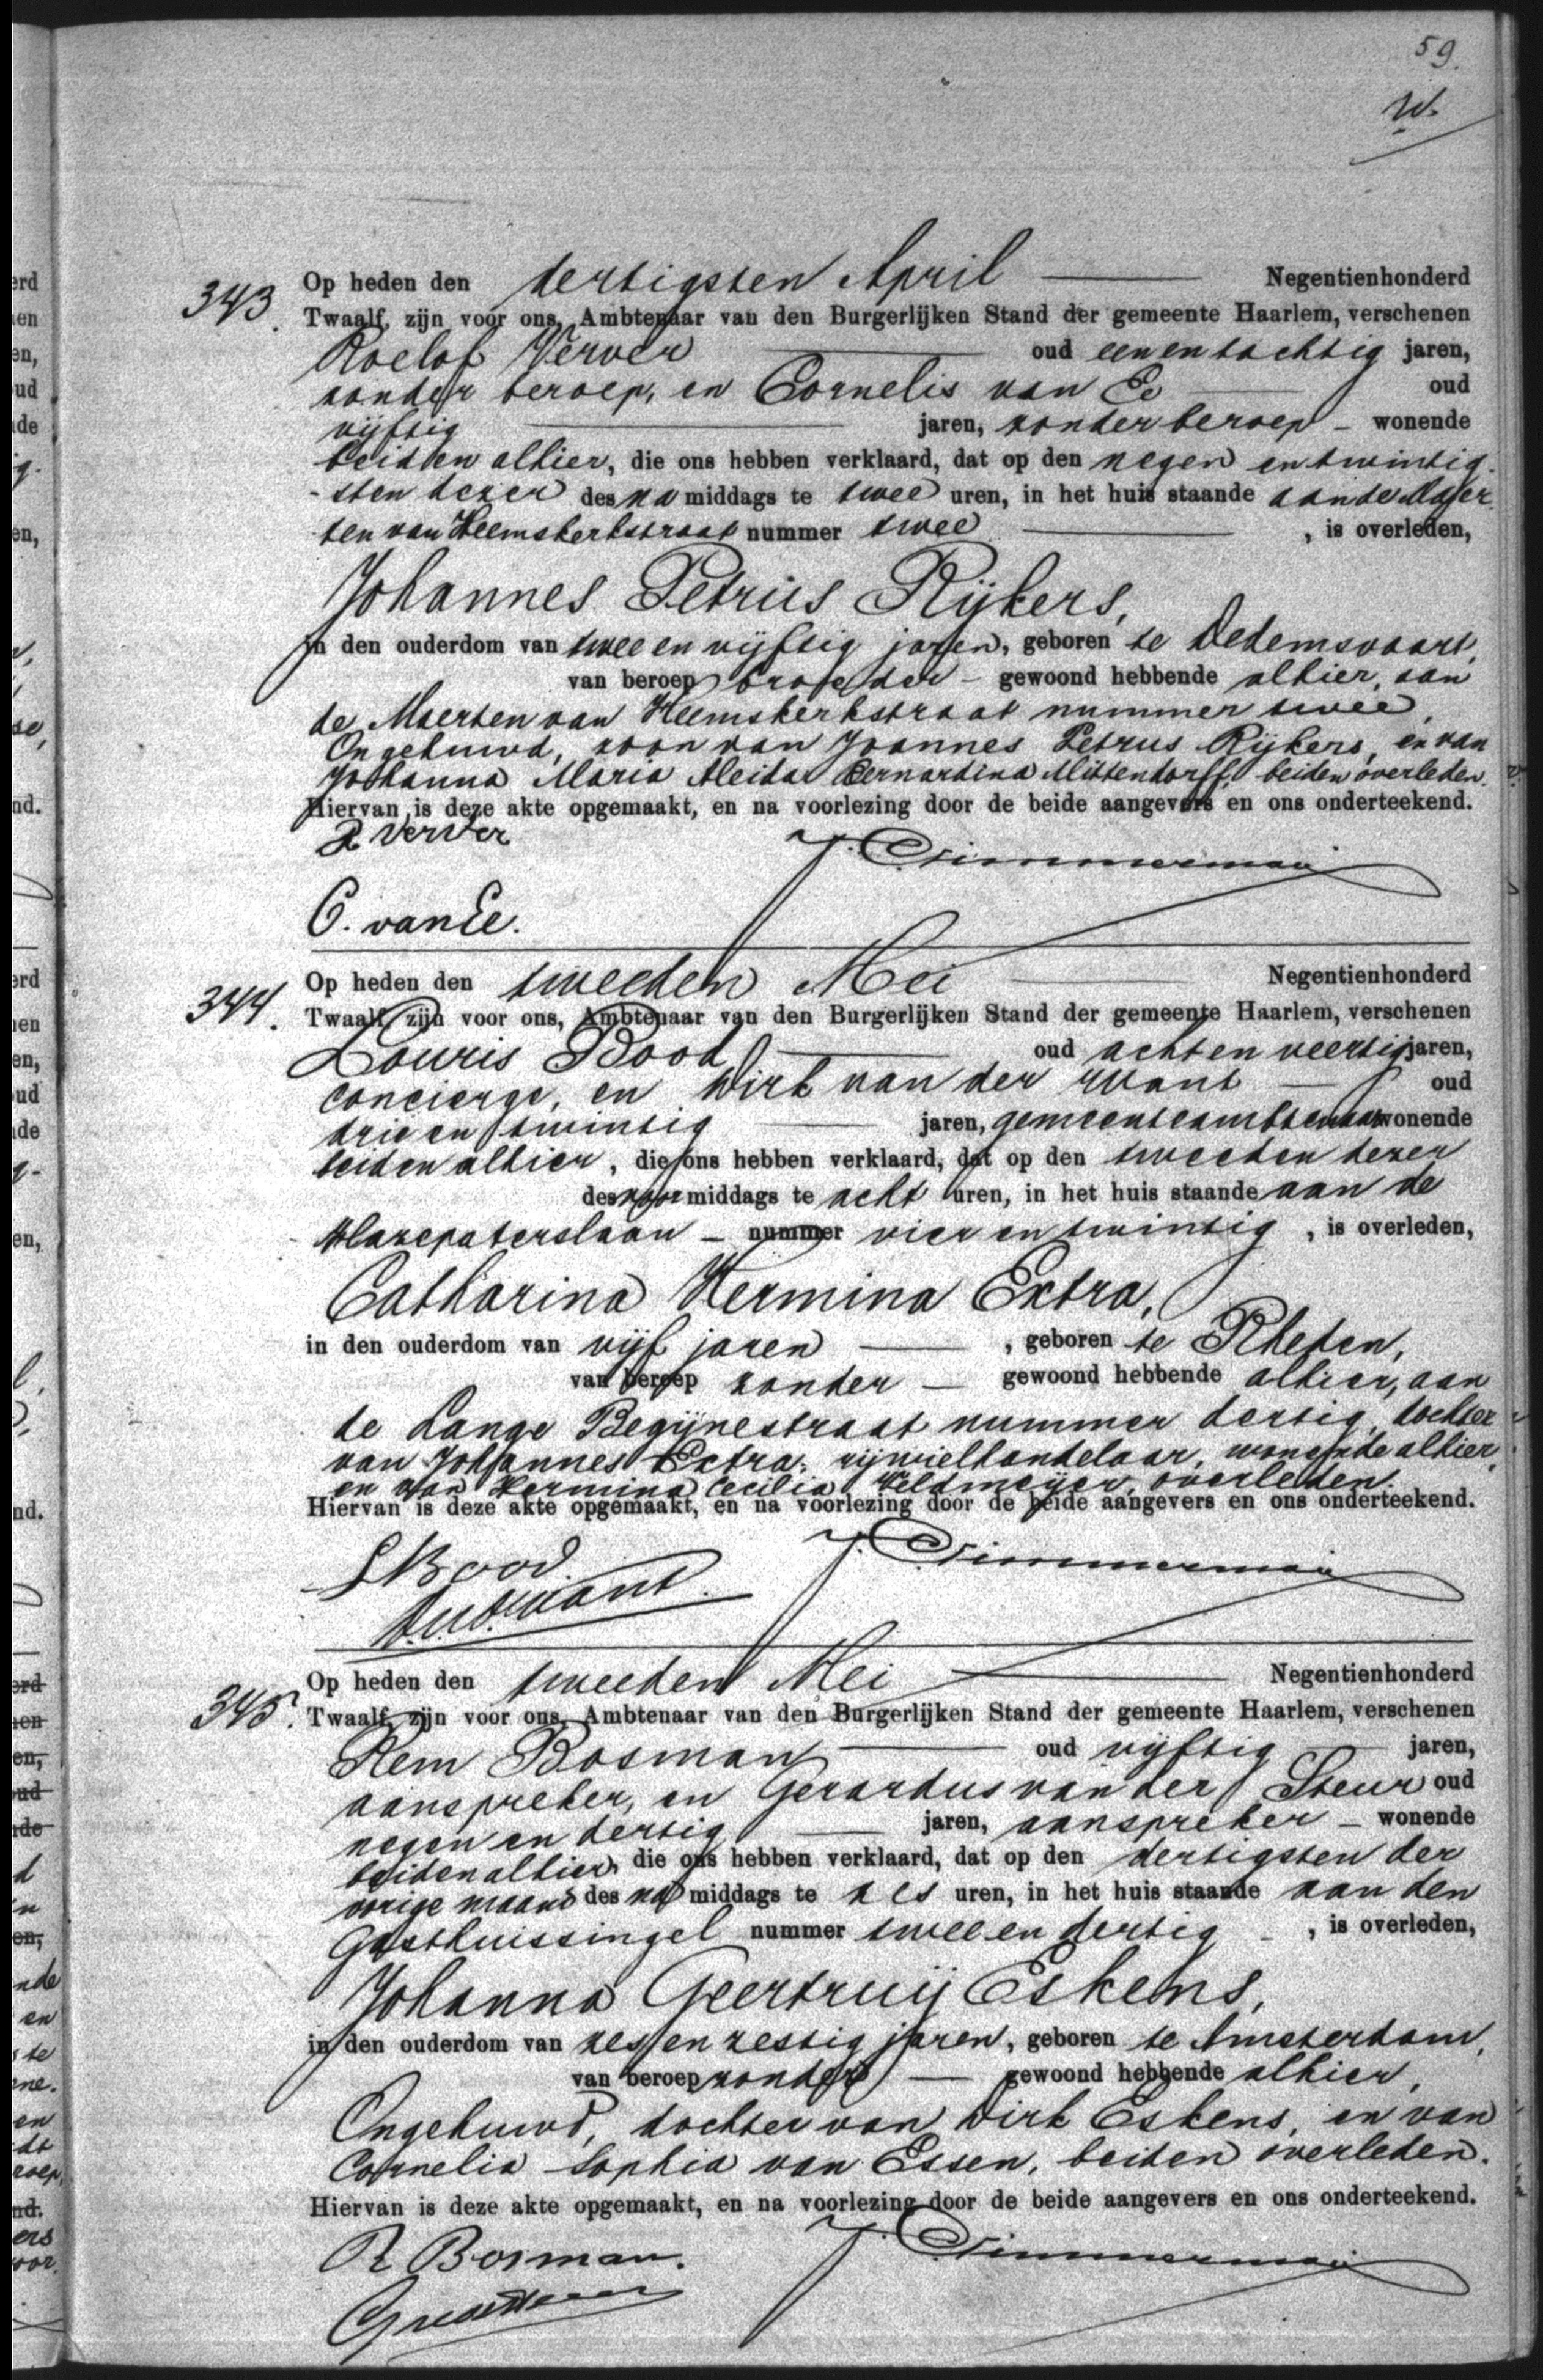 59.
343. Op heden den dertigsten April Negentienhonderd
Twaalf, zijn voor ons, Ambtenaar van den Burgerlijken Stand der gemeente Haarlem, verschenen
Roelof Verver oud eenentachtig jaren,
zonder beroep, en Cornelis van Ee oud
vijftig jaren, zonder beroep - wonende
beiden alhier, die ons hebben verklaard, dat op den negen en twintig-
-sten dezer des na middags te twee uren, in het huis staande aan de Maer
ten van Heemskerkstraat nummer twee , is overleden,
Johannes Petrus Rijkers,
in den ouderdom van twee en vijftig jaren, geboren te Dedemsvaart,
van beroep broeder - gewoond hebbende alhier, aan
de Maerten van Heemskerkstraat nummer twee,
Ongehuwd, zoon van Joannes Petrus Rijkers, en van
Johanna Maria Aleida Bernardina Mittendorff, beiden overleden.
Hiervan is deze akte opgemaakt, en na voorlezing door de beide aangevers en ons onderteekend.
R Verver
J. Timmerman
C. van Ee.
344. Op heden den tweeden Mei Negentienhonderd
Twaalf, zijn voor ons, Ambtenaar van den Burgerlijken Stand der gemeente Haarlem, verschenen
Louris Bood oud acht en veertig jaren,
concierge, en Dirk van der Want oud
drie en twintig jaren, gemeenteambtenaar wonende
beiden alhier, die ons hebben verklaard, dat op den tweeden dezer
des voor middags te acht uren, in het huis staande aan de
Hazepaterslaan - nummer vier en twintig , is overleden,
Catharina Hermina Extra,
in den ouderdom van vijf jaren , geboren te Rheden,
van beroep zonder - gewoond hebbende alhier, aan
de Lange Begijnestraat nummer dertig, dochter
van Johannes Extra, rijwielhandelaar, wonende alhier,
en van Hermina Cecilia Veldmeijer, overleden.
Hiervan is deze akte opgemaakt, en na voorlezing door de beide aangevers en ons onderteekend.
L Bood.
J. Timmerman
D. v. d. Want.
345. Op heden den tweeden Mei Negentienhonderd
Twaalf, zijn voor ons, Ambtenaar van den Burgerlijken Stand der gemeente Haarlem, verschenen
Rem Bosman oud vijftig jaren,
aanspreker, en Gerardus van der Steur oud
negen en dertig jaren, aanspreker - wonende
beiden alhier, die ons hebben verklaard, dat op den dertigsten der
vorige maand des na middags te zes uren, in het huis staande aan den
Gasthuissingel nummer twee en dertig - , is overleden,
Johanna Geertruij Eskens,
in den ouderdom van zes en zestig jaren, geboren te Amsterdam,
van beroep zonder - gewoond hebbende alhier,
Ongehuwd, dochter van Dirk Eskens, en van
Cornelia Sophia van Essen, beiden overleden.
Hiervan is deze akte opgemaakt, en na voorlezing door de beide aangevers en ons onderteekend.
R Bosman.
J. Timmerman